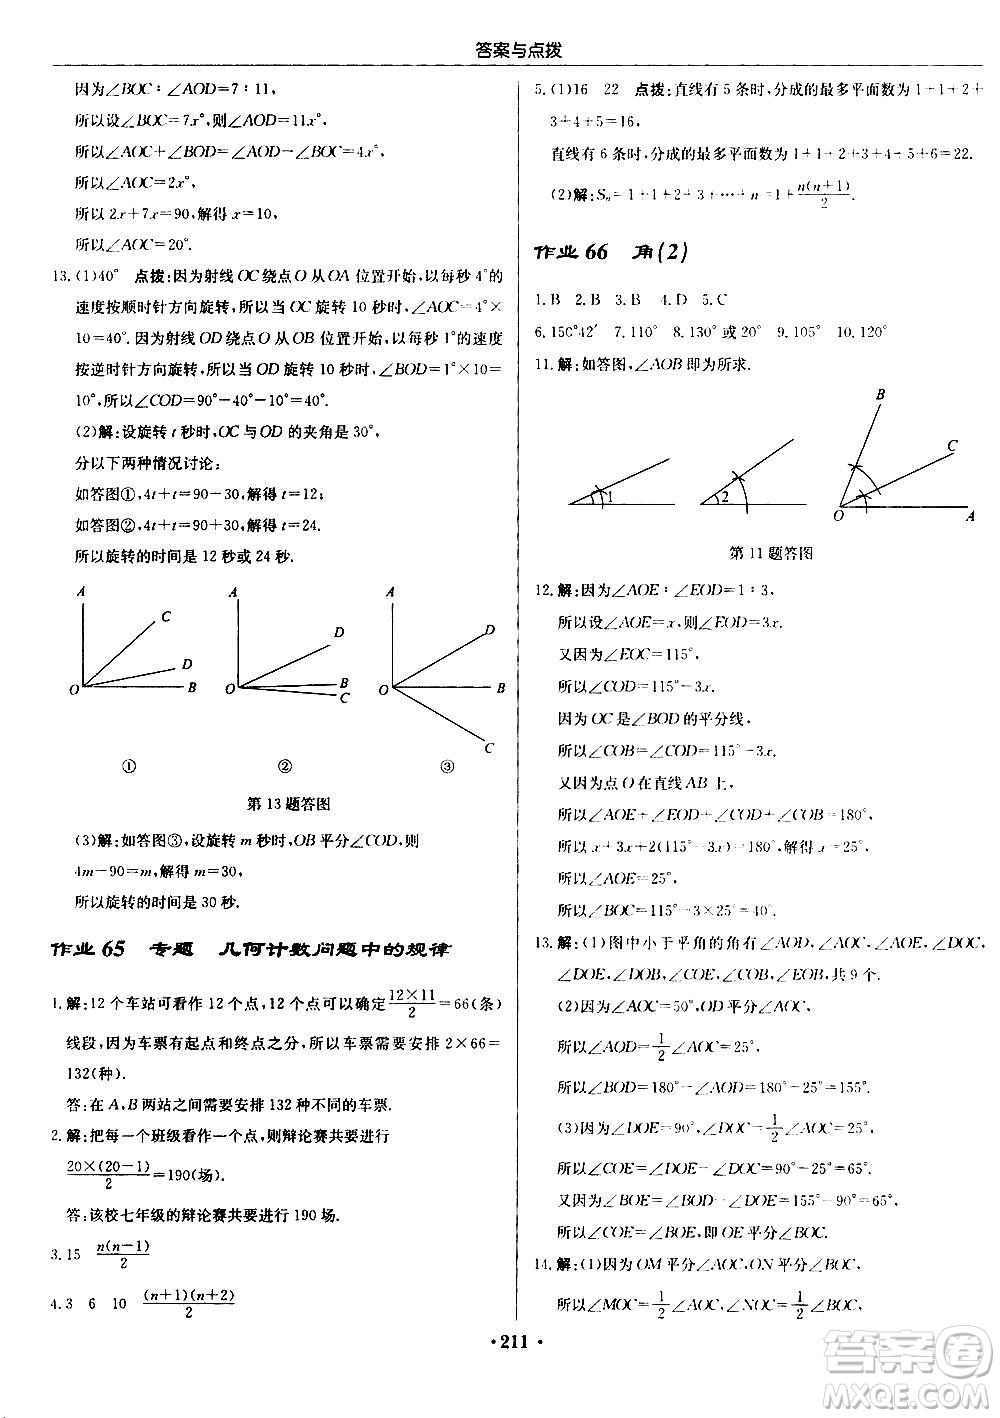 答案与点拨
因为∠BOC∶∠AOD=7∶11,
所以设∠BOC=7x°,则∠AOD=11x°.
所以∠AOC+∠BOD=∠AOD-∠BOC=4x°,
所以∠AOC=2x°,
所以2x+7x=90,解得x=10,
所以∠AOC=20°.
13.(1)40° 点拨:因为射线OC绕点O从OA位置开始,以每秒4°的
速度按顺时针方向旋转,所以当OC旋转10秒时,∠AOC=4°×
10=40°.因为射线OD绕点O从OB位置开始,以每秒1°的速度
按逆时针方向旋转,所以当OD旋转10秒时,∠BOD=1°×10=
10°,所以∠COD=90°-40°-10°=40°.
(2)解:设旋转t秒时,OC与OD的夹角是30°,
分以下两种情况讨论:
如答图①,4t+t=90-30,解得t=12;
如答图②,4t+t=90+30,解得t=24.
所以旋转的时间是12秒或24秒.
A C D O B
A D O B C
A D O B C
① ② ③
第13题答图
(3)解:如答图③,设旋转m秒时,OB平分∠COD,则
4m-90=m,解得m=30,
所以旋转的时间是30秒.
作业65 专题 几何计数问题中的规律
1.解:12个车站可看作12个点,12个点可以确定12×11/2=66(条)
线段,因为车票有起点和终点之分,所以车票需要安排2×66=
132(种).
答:在A,B两站之间需要安排132种不同的车票.
2.解:把每一个班级看作一个点,则辩论赛共要进行
20×(20-1)/2=190(场).
答:该校七年级的辩论赛共要进行190场.
3.15 n(n-1)/2
4.3 6 10 (n+1)(n+2)/2
5.(1)16 22 点拨:直线有5条时,分成的最多平面数为1+1+2+
3+4+5=16,
直线有6条时,分成的最多平面数为1+1+2+3+4+5+6=22.
(2)解:Sn=1+1+2+3+…+n=1+n(n+1)/2.
作业66 角(2)
1.B 2.B 3.B 4.D 5.C
6.150°42′ 7.110° 8.130°或20° 9.105° 10.120°
11.解:如答图,∠AOB即为所求.
1 2 B C O A
第11题答图
12.解:因为∠AOE∶∠EOD=1∶3,
所以设∠AOE=x,则∠EOD=3x.
又因为∠EOC=115°,
所以∠COD=115°-3x.
因为OC是∠BOD的平分线,
所以∠COB=∠COD=115°-3x.
又因为点O在直线AB上,
所以∠AOE+∠EOD+∠COD+∠COB=180°,
所以x+3x+2(115°-3x)=180°,解得x=25°,
所以∠AOE=25°,
所以∠BOC=115°-3×25°=40°.
13.解:(1)图中小于平角的角有∠AOD,∠AOC,∠AOE,∠DOC,
∠DOE,∠DOB,∠COE,∠COB,∠EOB,共9个.
(2)因为∠AOC=50°,OD平分∠AOC,
所以∠AOD=1/2∠AOC=25°,
所以∠BOD=180°-∠AOD=180°-25°=155°.
(3)因为∠DOE=90°,∠DOC=1/2∠AOC=25°,
所以∠COE=∠DOE-∠DOC=90°-25°=65°.
又因为∠BOE=∠BOD-∠DOE=155°-90°=65°,
所以∠COE=∠BOE,即OE平分∠BOC.
14.解:(1)因为OM平分∠AOC,ON平分∠BOC,
所以∠MOC=1/2∠AOC,∠NOC=1/2∠BOC,
·211·
答案圈
MXQE.COM